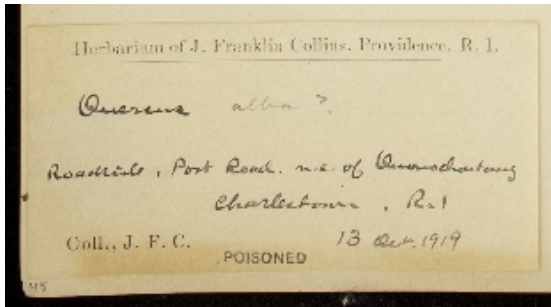 Herbarium of J. Franklin Collins. Providence, R. I.
Quercus alba ?
Roadside, Post Road. n.e. of Quonochontaug
Charlestown, R.I
Coll., J. F. C. 13 Oct. 1919
POISONED